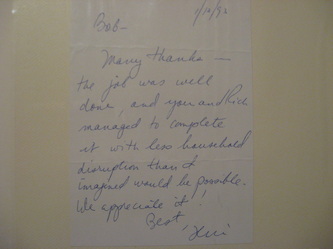 Bob-
Many thanks —
the job was well
done, and you and Rick
managed to complete
it with less household
disruption than I
imagined would be possible.
We appreciate it!
Best